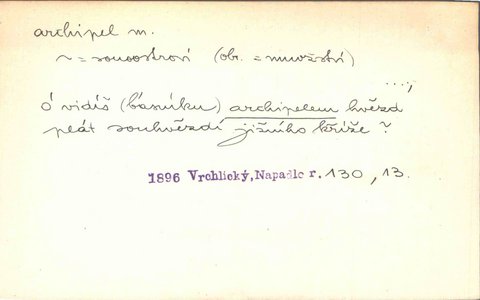 archipel m.
~ = souostroví (ob. = množství)
...,
ó vidíš (básníku) archipelem hvězd
plát souhvězdí jižního kříže ?
1896 Vrchlický, Napadlo r. 130, 13.